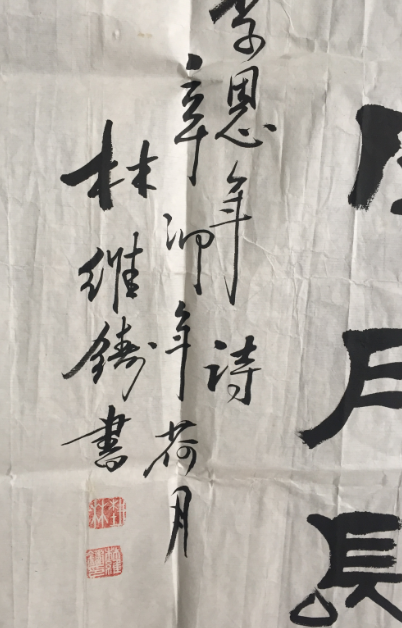 月長
李恩年詩
辛卯年荷月
林維鑄書